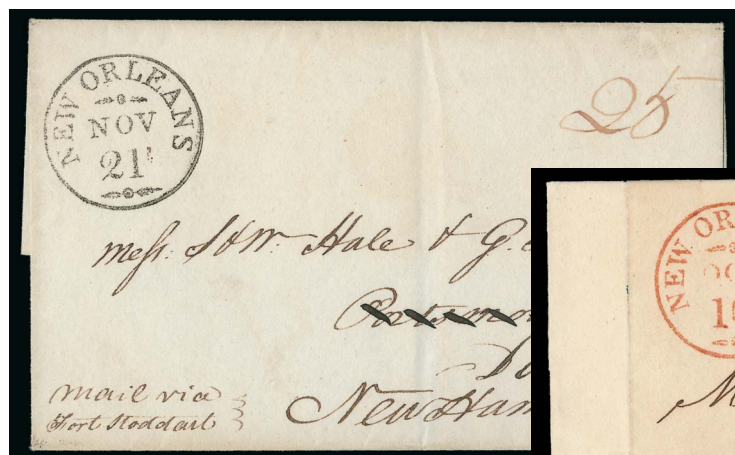 NEW ORLEANS
NOV
21
25
Messr. S & W. Hale & G.
Portsmo
Do
New Ham
mail via
Fort Stoddart
NEW OR
OC
1
M